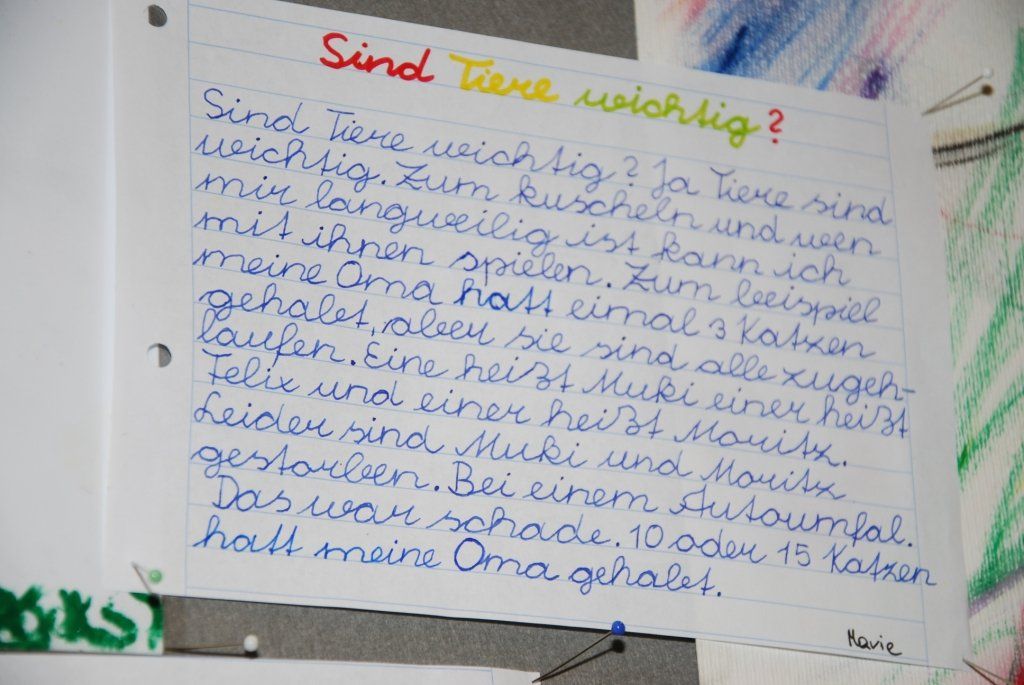 Sind Tiere wichtig?
Sind Tiere wichtig? Ja Tiere sind
wichtig. Zum kuscheln und wen
mir langweilig ist kann ich
mit ihnen spielen. Zum beispiel
meine Oma hatt eimal 3 Katzen
gehabt, aber sie sind alle zugeh-
laufen. Eine heißt Muki einer heißt
Felix und einer heißt Moritz.
Leider sind Muki und Moritz
gestorben. Bei einem Autoumfal.
Das war schade. 10 oder 15 Katzen
hatt meine Oma gehabt.
Marie